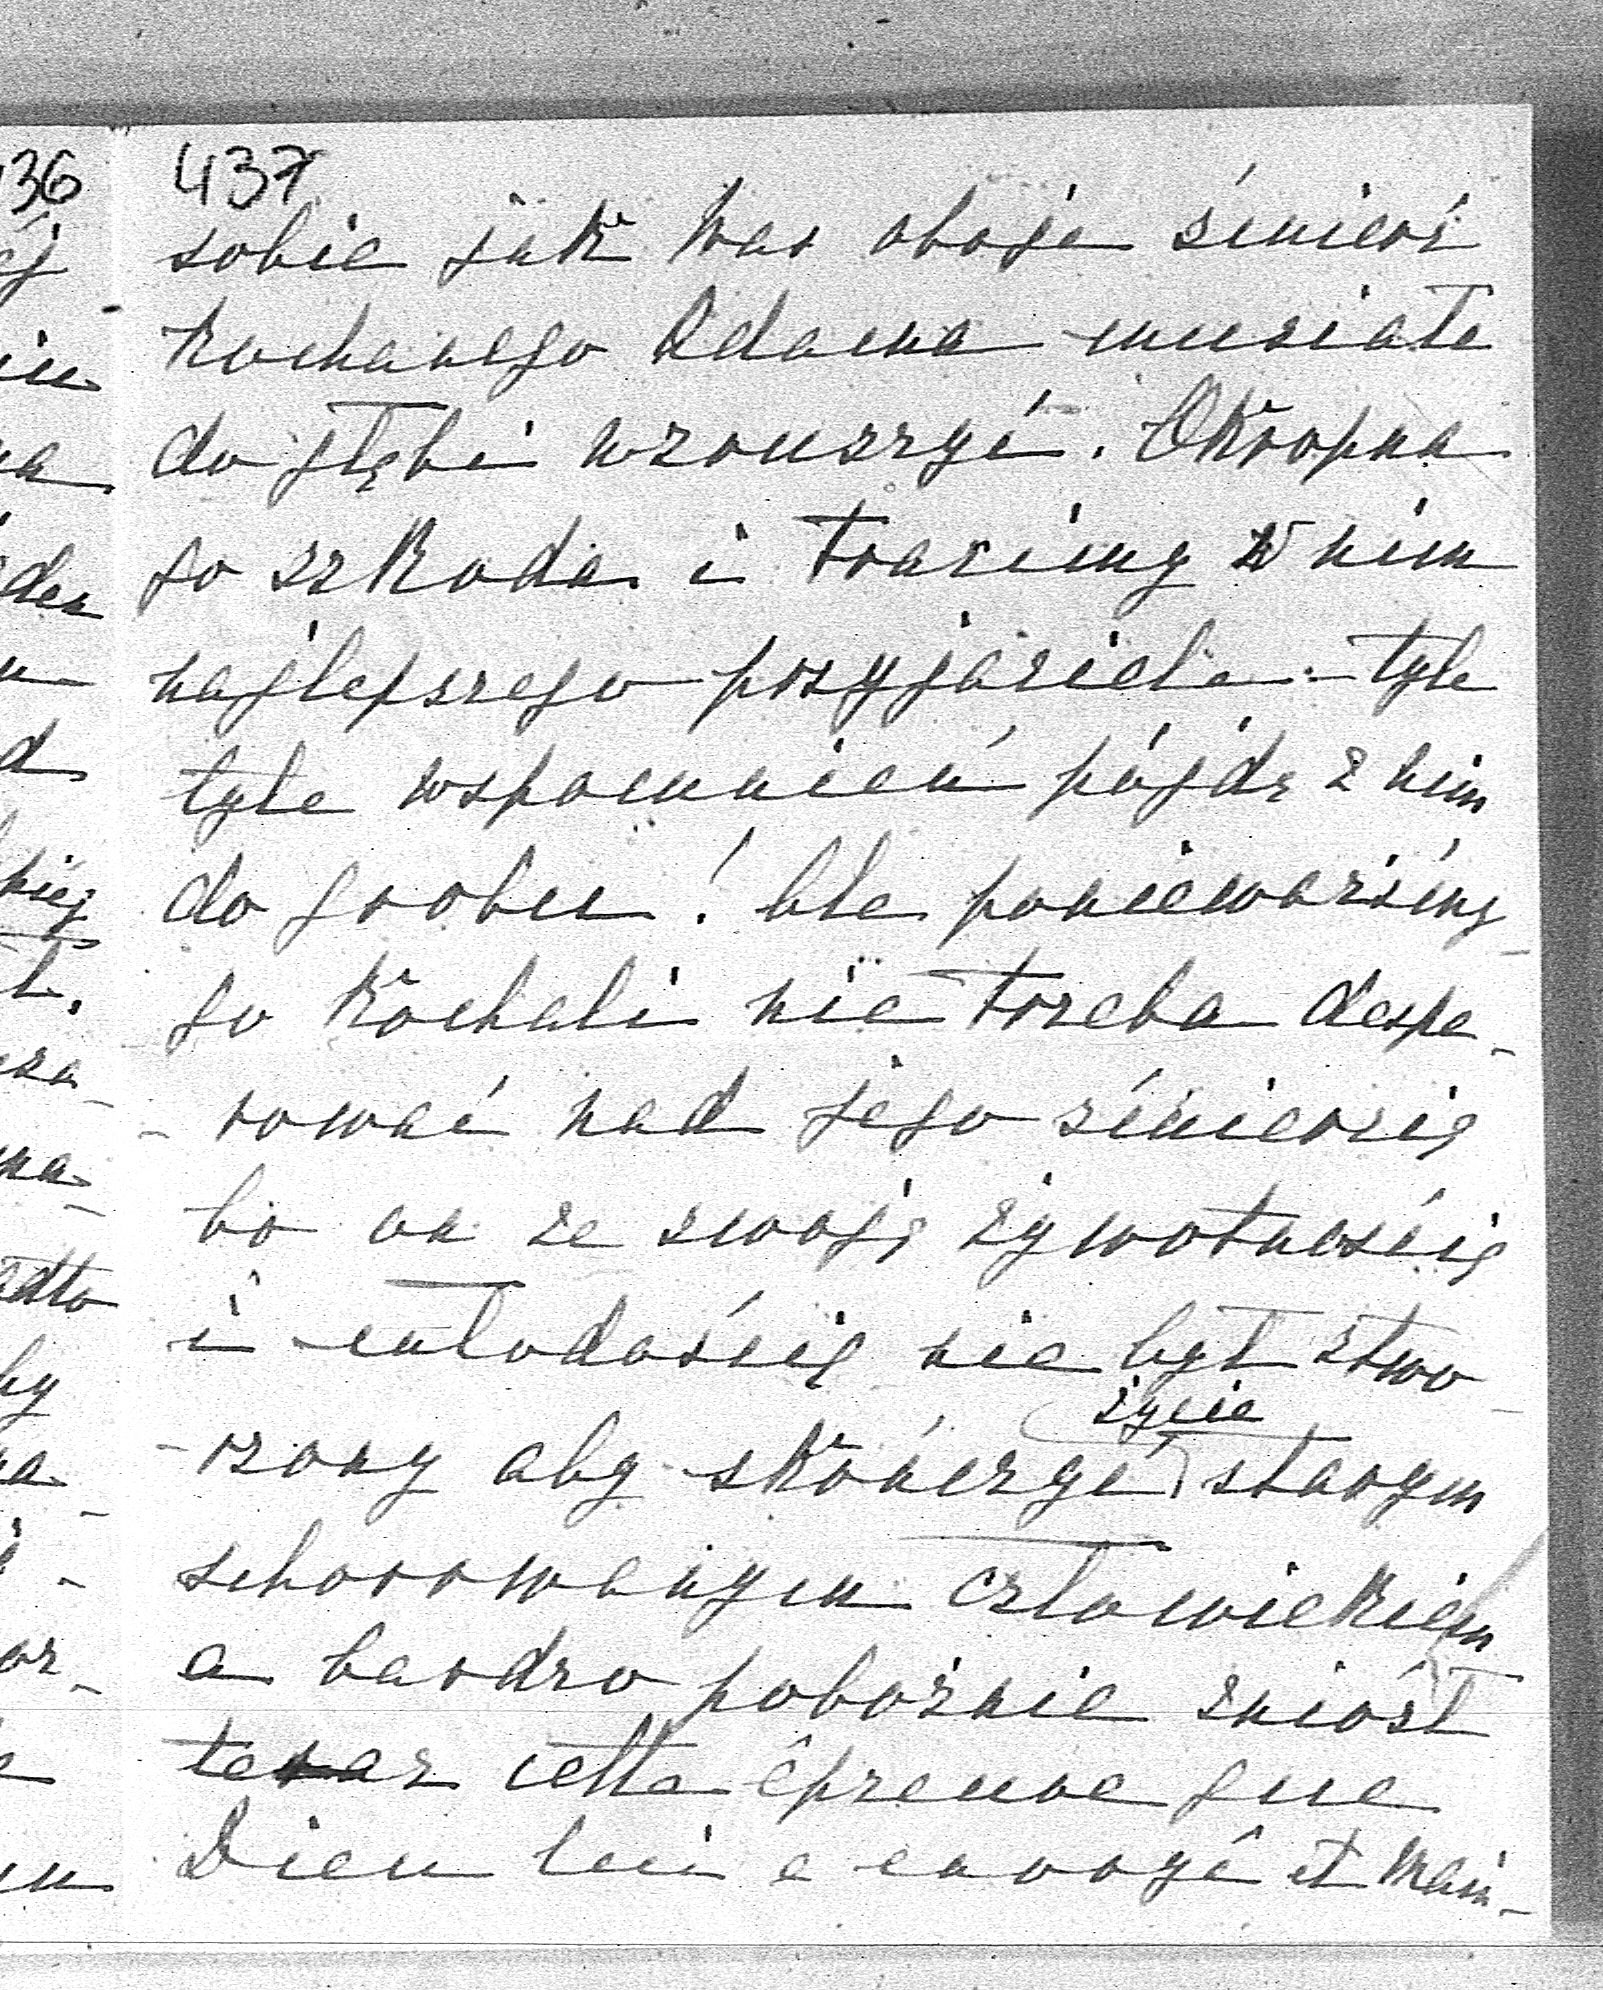 437
sobie jak Was oboje śmierć
kochanego Adama musiała
do głębi wzruszyć. Okropna
go szkoda i tracimy w nim
najlepszego przyjaciela - tyle
tyle wspomnień pójdą z nim
do grobu! Ale ponieważśmy
go kochali nie trzeba despe-
- rować nad jego śmiercią
bo on ze swoją żywotnością
i młodością nie był stwo-
- rzony aby skończyć życie starym
schorowanym człowiekiem
a bardzo pobożnie zniósł
teraz cette épreuve que
Dieu lui a envoyé et main-